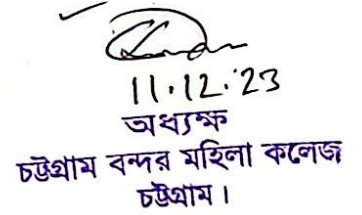 11.12.23
অধ্যক্ষ
চট্টগ্রাম বন্দর মহিলা কলেজ
চট্টগ্রাম।